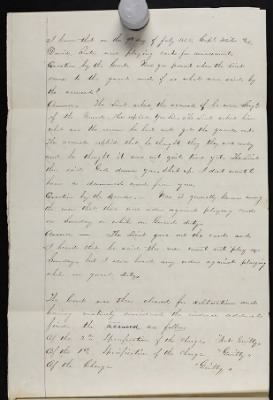 I know that on the 9th day of July 1865 Capt
David were playing cards for amusement.
Question by the Court. Were you present when the Lieut
came to the guard and if so what was said by
the accused?
Answer. The Lieut asked the accused if he was Sergt
of the Guard. He replied Yes Sir. The Lieut asked him
what was the reason he had not got the guards out.
The accused replied that he thought they they were early
and he thought it was not quite time yet. The Lieut
then said God damn you, shut up I don't want to
have a damned word from you.
Question by the Accused. Was it generally known among
the men that there was order against playing cards
on Sunday or while on Guard duty
Answer. The Lieut gave out the cards and
I heard that he said the men must not play on
Sundays, but I never heard any order against playing
while on guard duty.
The Court was then cleared for deliberation and
having maturely considered the evidence adduced
find the accused as follows
Of the 2nd Specification of the charge "Not Guilty"
Of the 1st Specification of the Charge "Guilty"
Of the Charge "Guilty"